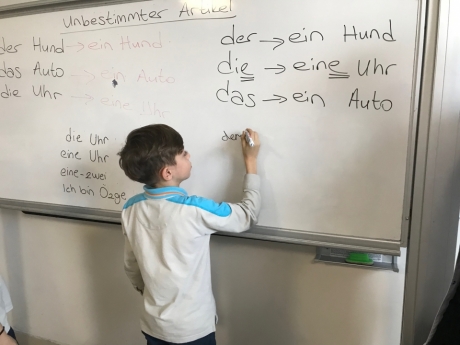 Unbestimmter Artikel
der Hund → ein Hund
das Auto → ein Auto
die Uhr → eine Uhr
die Uhr
eine Uhr
eine-zwei
Ich bin Özge
der → ein Hund
die → eine Uhr
das → ein Auto
der